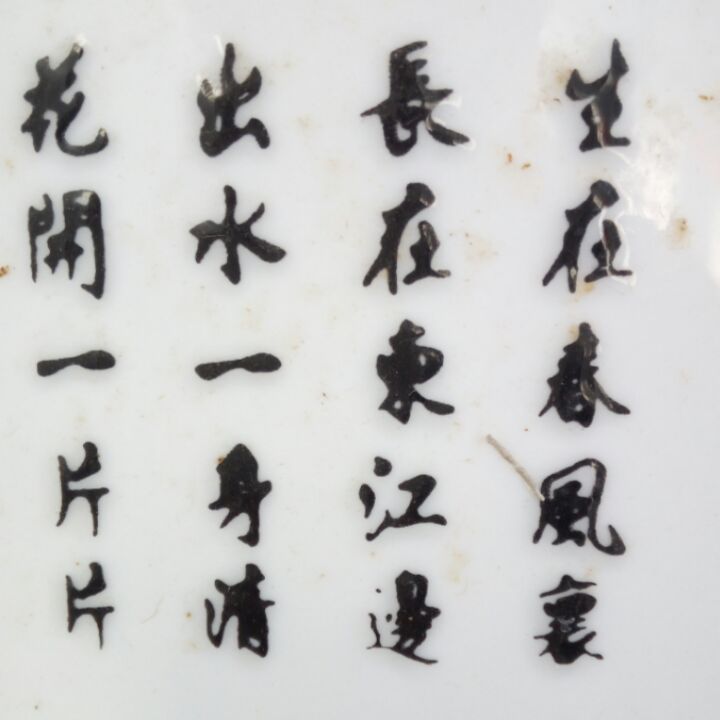 生在春風裏
長在東江邊
出水一身清
花開一片片